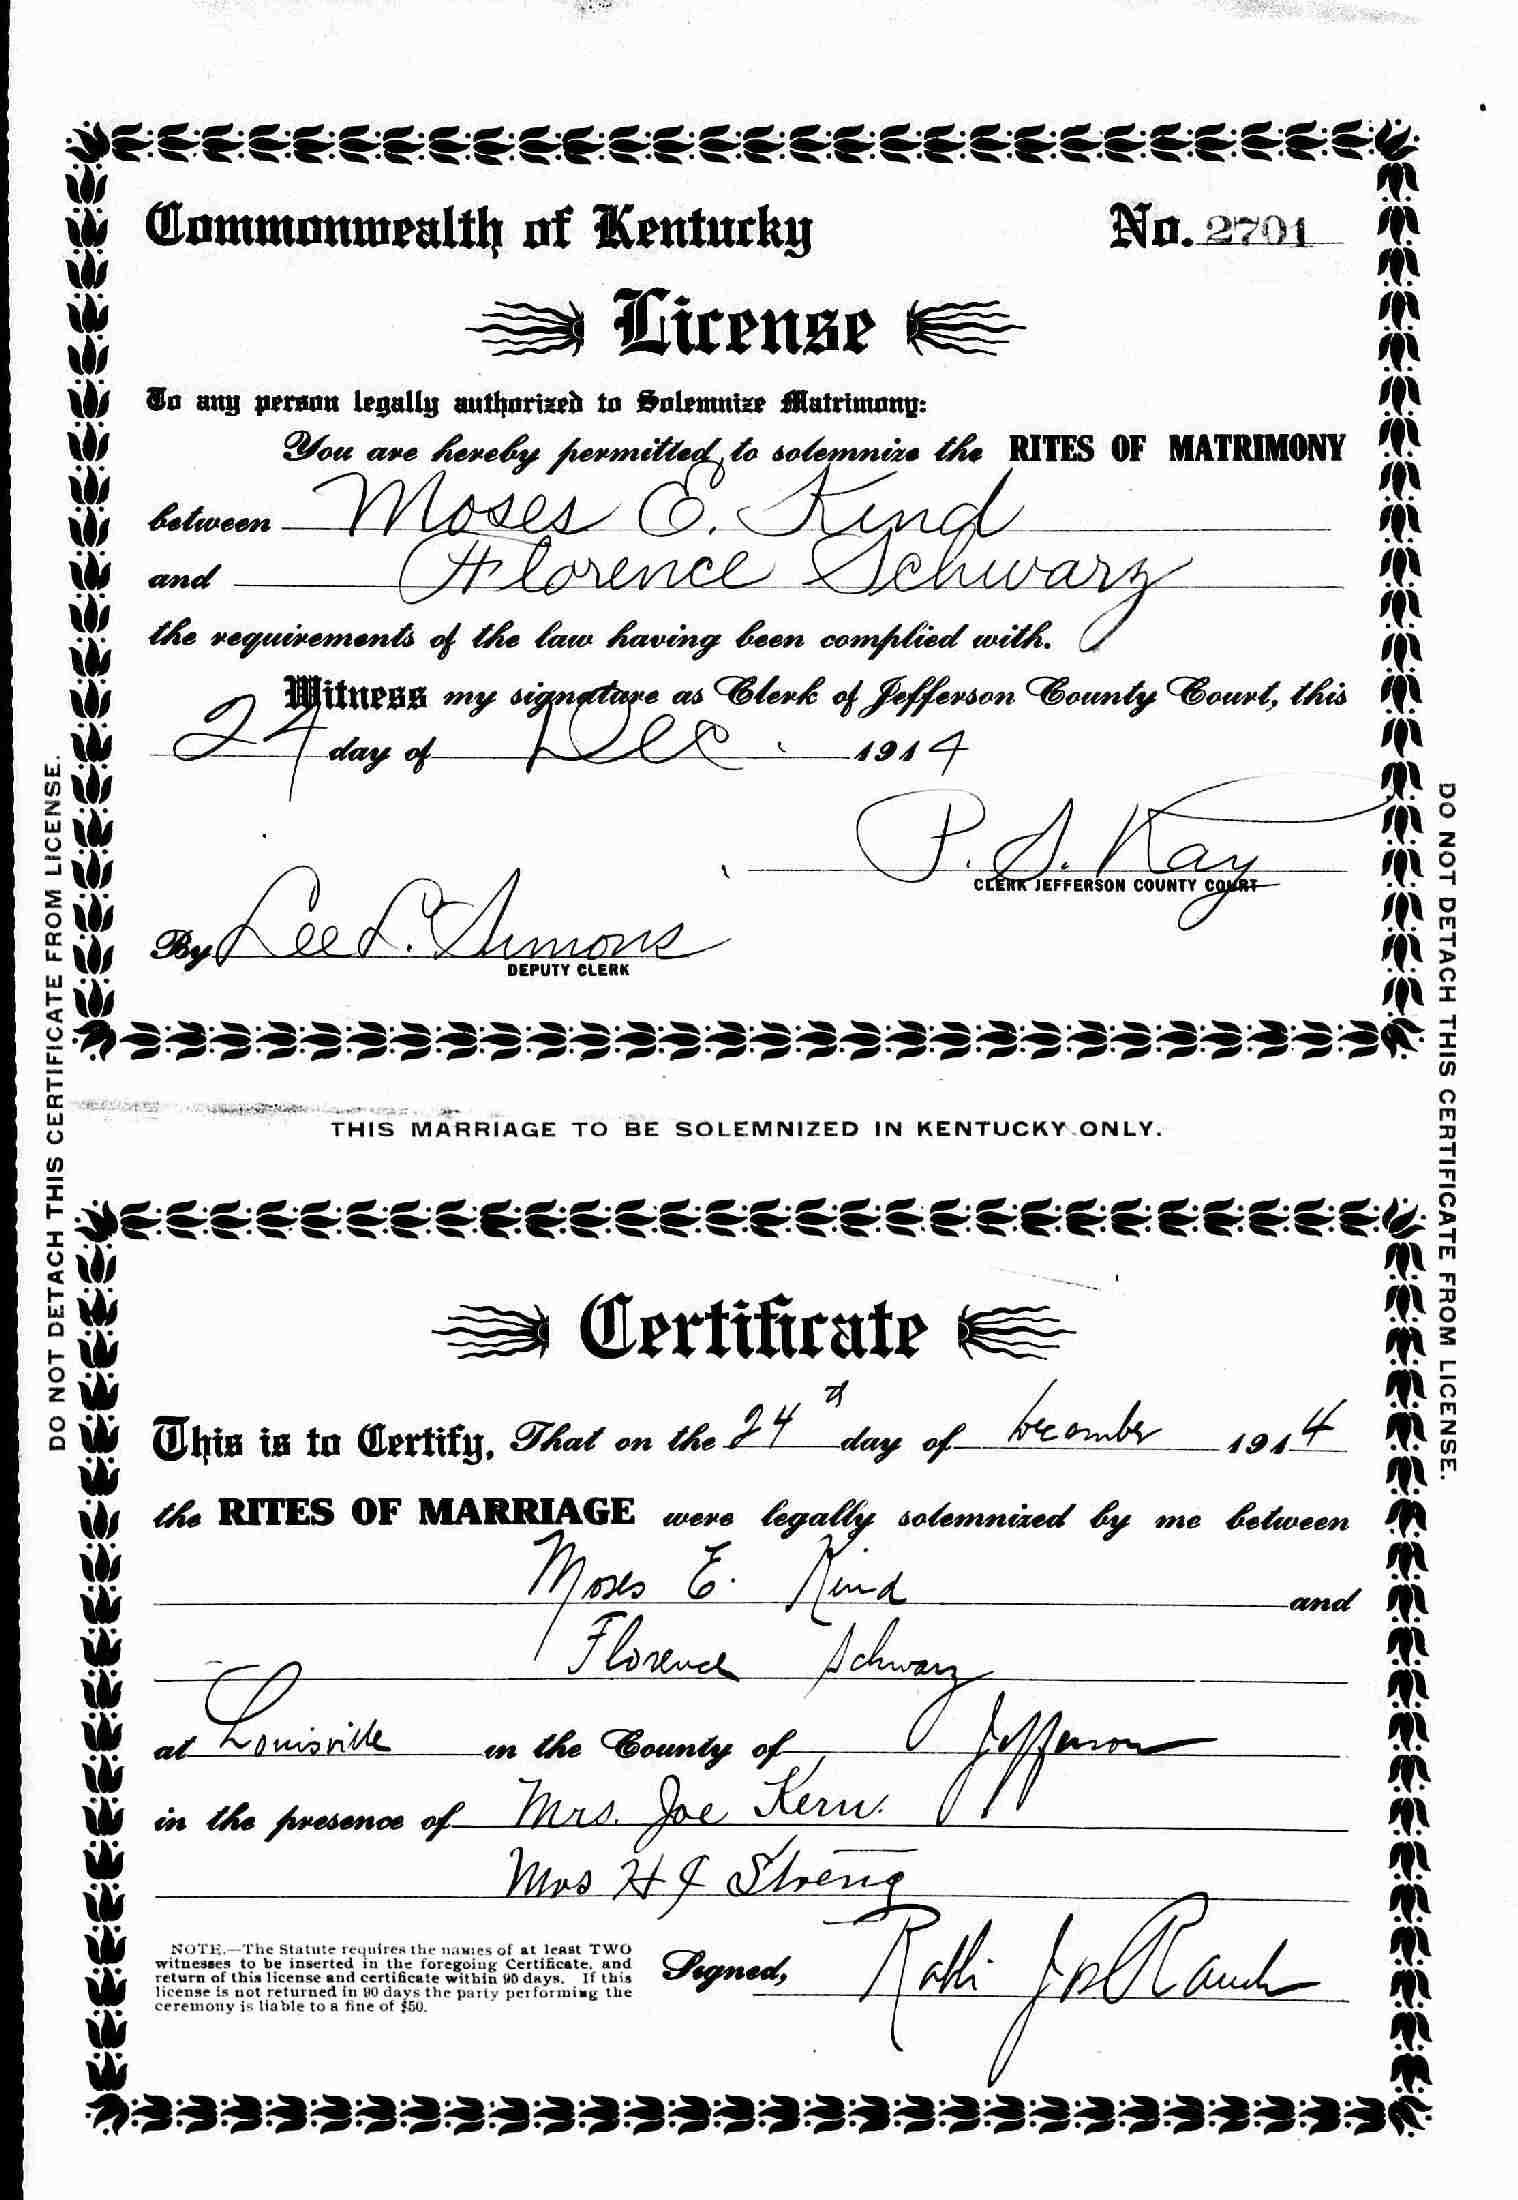 Commonwealth of Kentucky No. 2701
License
To any person legally authorized to Solemnize Matrimony:
You are hereby permitted, to solemnize the RITES OF MATRIMONY
between Moses E. Kind
and Florence Schwarz
the requirements of the law having been complied with.
Witness my signature as Clerk of Jefferson County Court, this
24 day of Dec. 1914
P. S. Ray
CLERK JEFFERSON COUNTY COURT
By Lee L. Simons
DEPUTY CLERK
THIS MARRIAGE TO BE SOLEMNIZED IN KENTUCKY ONLY.
DO NOT DETACH THIS CERTIFICATE FROM LICENSE.
DO NOT DETACH THIS CERTIFICATE FROM LICENSE.
Certificate
This is to Certify, That on the 24th day of December 1914
the RITES OF MARRIAGE were legally solemnized by me between
Moses E. Kind and
Florence Schwarz
at Louisville in the County of Jefferson
in the presence of Mrs. Joe Kern.
Mrs H J Streng
NOTE.—The Statute requires the names of at least TWO
witnesses to be inserted in the foregoing Certificate, and
return of this license and certificate within 90 days. If this
license is not returned in 90 days the party performing the
ceremony is liable to a fine of $50.
Signed, Rabbi Jos Rauch